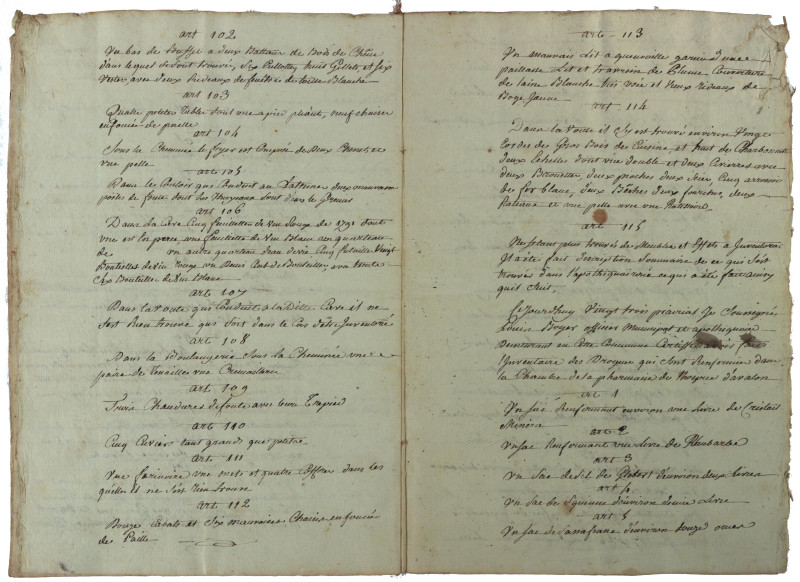 art 102
Un bas de Buffet a deux Battans de Bois de Chêne
dans lequel se sont trouvé, Six Cullottes, huit Gillets, et six
Vestes avec deux Rideaux de fenêtres de toille Blanche
art 103
Quatre petites tables dont une a pied pliant, neuf chaises
enfoncée de paille
art 104
Sous la Cheminée le foyer est Composé de Deux Chenets et
une pelle
art 105
Dans le Couloir qui Conduit au Lattrine deux mauvais
poiles de fonte dont les tuyaux sont dans le Grenier
art 106
Dans la Cave Cinq feuillettes de vin Rouge de 1791 dont
une est en perce une feuillette de Vin Blanc un quarteau
de un autre quarteau Deau de vie Cinq futailles Vingt
Bouteilles de vin rouge un Demi Cent de Bouteilles, une
Six Bouteilles de Vin Blanc
art 107
Dans la voute qui Conduit a la Ditte Cave il ne
sest Rien trouvé qui soit dans le Cas d'être Inventorié
art 108
Dans la Boulangerie Sous la Cheminée une
paire de tenailles une Cremaillere
art 109
Trois Chaudieres de fonte avec leurs Trepied
art 110
Cinq Cuviers tant grands que petits
art 111
Une farinière une mets et quatre Coffres dans les
quelles il ne s'est rien trouvé
art 112
Douze Cabats et Six mauvaises Chaises enfoncée
de Paille
art 113
Un mauvais Lit a quenouille garni d'une
paillasse Lit et traversin de Plume Couverture
de laine Blanche Ciel et vieux rideaux de
Serge Jaune
art 114
Dans la Voute il s'y est trouvé environ Vingt
Cordes de Gros Bois de Cuisine et huit de Charbonnette
deux Echelles dont une double et deux Civieres avec
deux Brouettes, deux pioches deux Scies, Cinq arrosoirs
de fer blanc, deux Bêches deux fourches, deux
Rateaux et une pelle avec une Ratissoire
art 115
Ne s'étant plus trouvés de Meubles et Effets a Inventorier
Il a été fait Description Sommaire de ce qui s'est
trouvés dans l'apothiquairerie ce qui a été fait ainsy
quil suit,
Cejourdhuy Vingt trois prairial Je Soussigné
Louis Boyer officier Municipal et apothiquaire
Demeurant en Cette Commune Certifie avoir fait
l'Inventaire des Drogues qui sont Renfermée dans
la Chambre de la pharmacie de l'hospice d'avalon
art 1
Un sac Renfermant environ une Livre de Cristail
Mineral
art 2
Un sac Renfermant une Livre de Rhubarbe
art 3
Un sac de sel de Globert d'environ deux Livres
art 4
Un sac de Squinne d'environ demie Livre
art 5
Un sac de Sassafrane d'environ douze onces